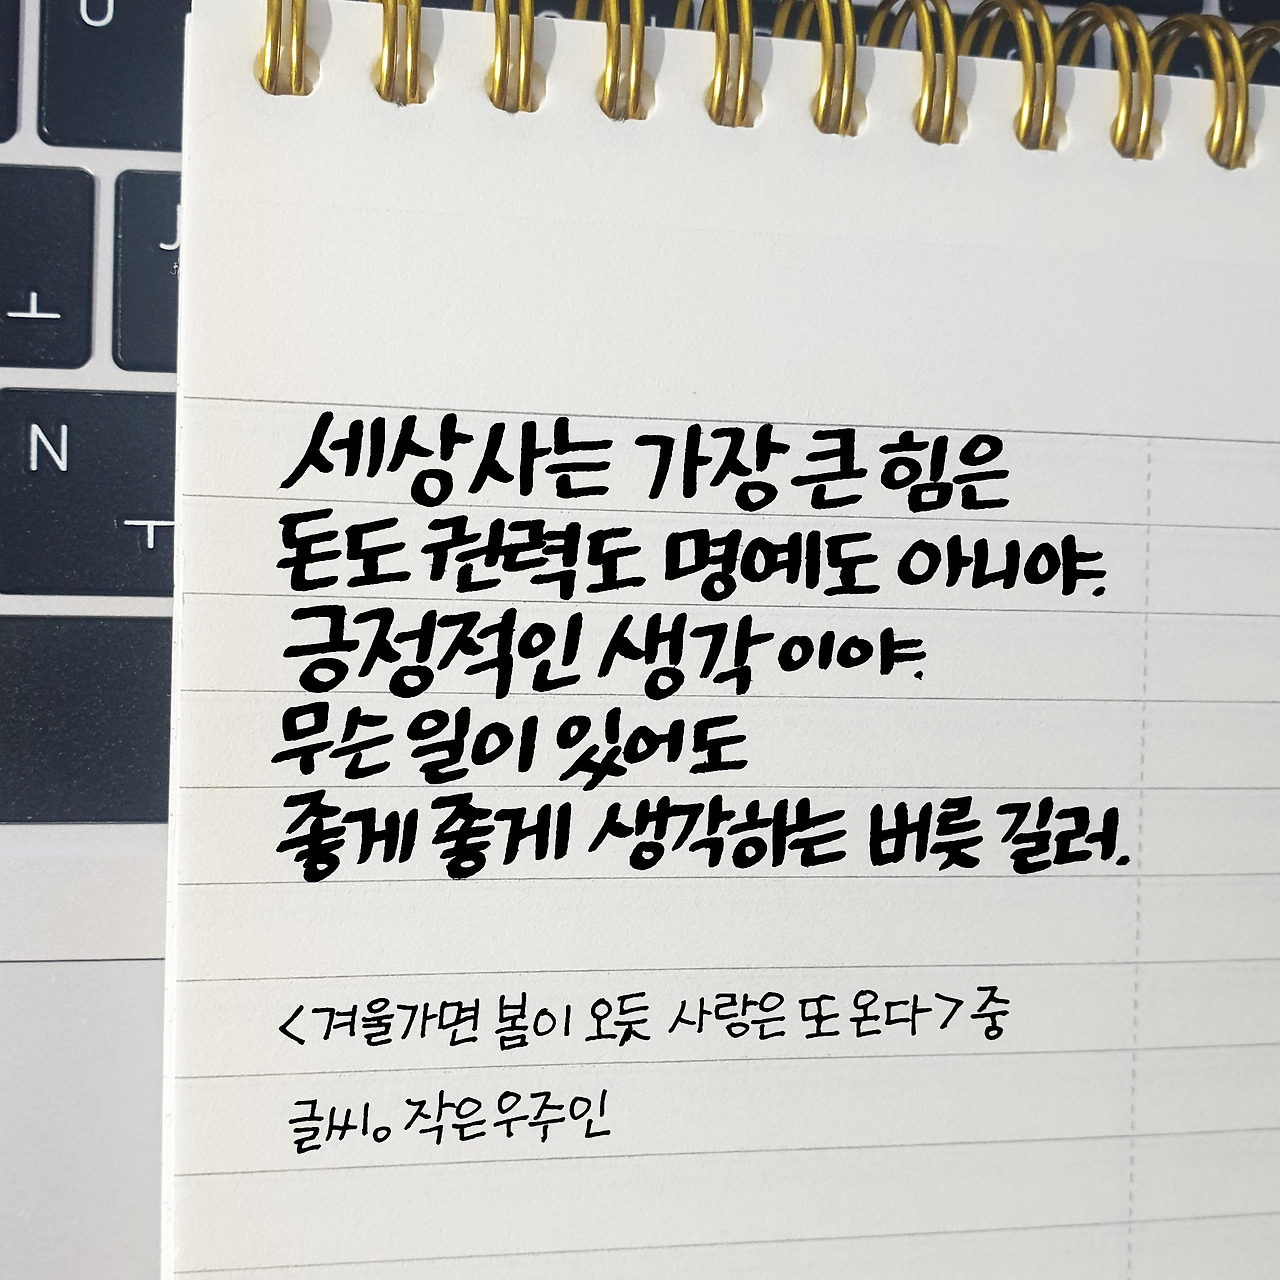 U
J
ㅗ
N
ㅜ
세상사는 가장 큰 힘은
돈도 권력도 명예도 아니야.
긍정적인 생각이야.
무슨 일이 있어도
좋게 좋게 생각하는 버릇 길러.
<겨울가면 봄이 오듯 사랑은 또 온다> 중
글씨。 작은우주인